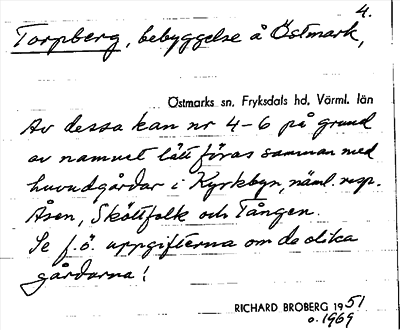 4.
Torpberg, bebyggelse å Östmark,
Östmarks sn. Fryksdals hd, Värml. län
Av dessa kan nr 4-6 på grund
av namnet lätt föras samman med
huvudgårdar i Kyrkbyn, näml. resp.
Åsen, Sköttfolk och Tången.
Se f.ö. uppgifterna om de olika
gårdarna!
RICHARD BROBERG 1951
o. 1969